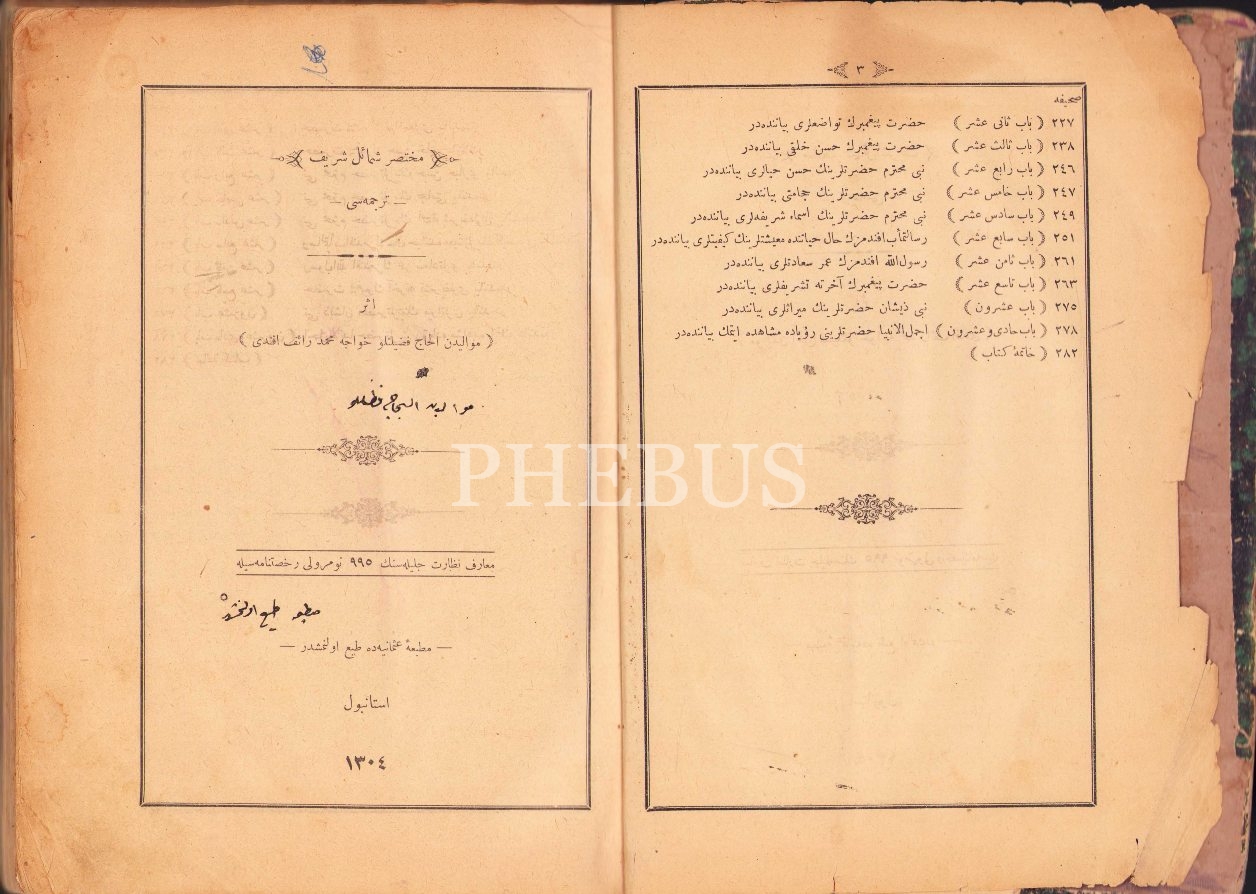 ٣
صحیفه
٢٢٧ ( باب ثانی عشر ) حضرت پیغمبرك تواضعلری بیاننده‌در
٢٣٨ ( باب ثالث عشر ) حضرت پیغمبرك حسن خلقی بیاننده‌در
٢٤٦ ( باب رابع عشر ) نبی محترم حضرتلرینك حسن حیالری بیاننده‌در
٢٤٧ ( باب خامس عشر ) نبی محترم حضرتلرینك حجامتی بیاننده‌در
٢٤٩ ( باب سادس عشر ) نبی محترم حضرتلرینك اسماء شریفه‌لری بیاننده‌در
٢٥١ ( باب سابع عشر ) رسالتمأب افندمزك حال حیاتنده معیشتلرینك كیفیتلری بیاننده‌در
٢٦١ ( باب ثامن عشر ) رسول‌الله افندمزك عمر سعادتلری بیاننده‌در
٢٦٣ ( باب تاسع عشر ) حضرت پیغمبرك آخرته تشریفلری بیاننده‌در
٢٧٥ ( باب عشرون ) نبی ذیشان حضرتلرینك میراثلری بیاننده‌در
٢٧٨ ( باب حادی و عشرون ) اجمل الانبیا حضرتلرینی رؤیاده مشاهده ایتمك بیاننده‌در
٢٨٢ ( خاتمۀ كتاب )
مختصر شمائل شریف
ترجمه‌سی
اثر
( موالیدن الحاج فضیلتلو خواجه محمد رائف افندی )
معارف نظارت جلیله‌سنك ٩٩٥ نومرولی رخصتنامه‌سیله
طبع اولنمشدر
— مطبعۀ عثمانیه‌ده طبع اولنمشدر —
استانبول
١٣٠٤
PHEBUS